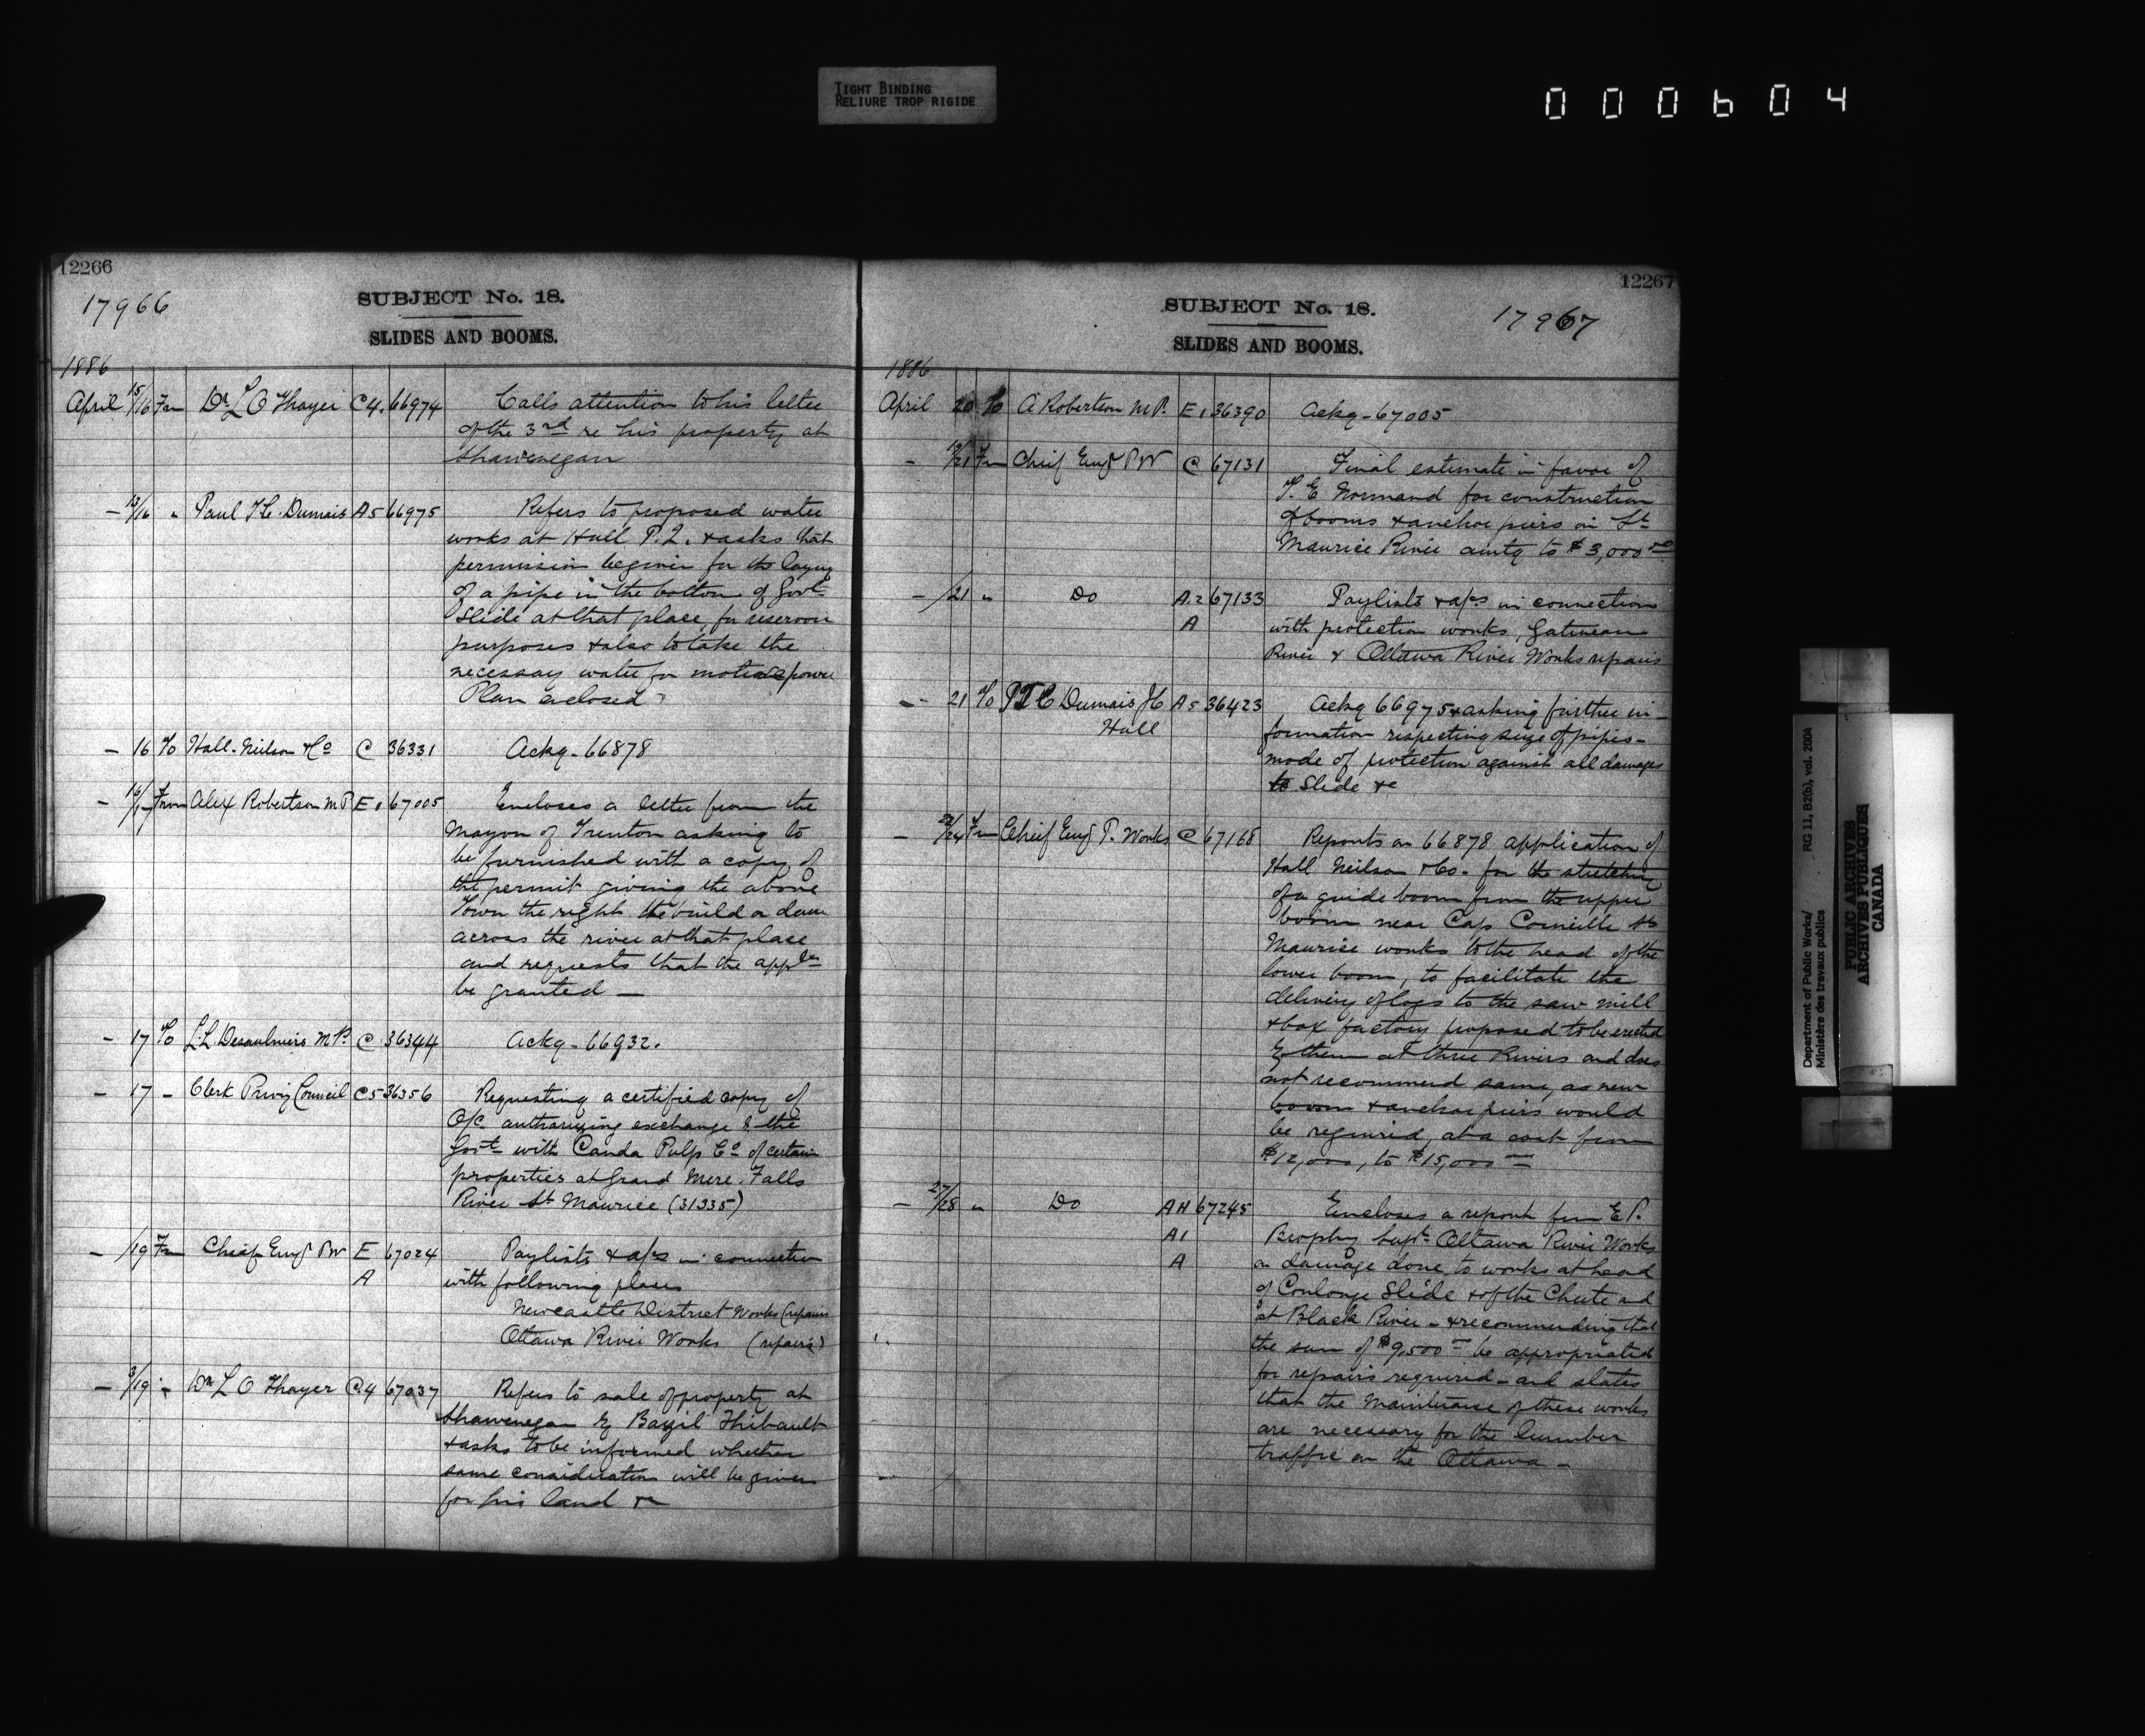 TIGHT BINDING
RELIURE TROP RIGIDE
000604
12266
17966
SUBJECT No. 18.
SLIDES AND BOOMS.
1886
April 15/16 Fm Dr L O Thayer C4. 66974 Calls attention to his letter
of the 3rd re his property at
Shawenegan
- 13/16 " Paul T C. Dumais A5 66975 Refers to proposed water
works at Hull P.Q. & asks that
permission be given for the laying
of a pipe in the bottom of Govt
Slide at that place, for reservoir
purposes & also to take the
necessary water for motive power
Plan enclosed
- 16 To Hall. Neilson & Co C 36331 Ackg - 66878
- 16/17 From Alex Robertson M P E1 67005 Encloses a letter from the
Mayor of Trenton asking to
be furnished with a copy of
the permit giving the above
Town the right to build a dam
across the river at that place
and requests that the appln
be granted -
- 17 To L. L Desaulniers M P. C 36344 Ackg - 66932.
- 17 - Clerk Privy Council C5 36356 Requesting a certified copy of
O/C authorizing exchange by the
Govt with Canda Pulp Co of certain
properties at Grand Mere. Falls
River St Maurice (31335)
- /19 Fm Chief Engr P W E 67024 Paylists & a/cs in connection
A with following places
Newcastle District Works (repairs
Ottawa River Works (repairs)
- 3/19 " Dr L O Thayer C.4 67037 Refers to sale of property at
Shawenegan by Bazil Thibault
& asks to be informed whether
same consideration will be given
for his land &c
12267
17967
SUBJECT No. 18.
SLIDES AND BOOMS.
1886
April 20 To A Robertson M P. E1 36390 Ackg - 67005
- 19/21 Fm Chief Engr P W C 67131 Final estimate in favor of
T. E Normand for construction
of booms & anchor piers on St
Maurice River amtg to $3,000.00
- /21 " Do A.2 67133 Paylists & a/cs in connection
A with protection works, Gatineau
River & Ottawa River Works repairs
- 21 To P T C Dumais A5 36423 Ackg 66975 & asking further in-
Hull formation respecting size of pipes -
mode of protection against all damages
to Slide &c
- 22/24 Fm Chief Engr P. Works C 67168 Reports on 66878 application of
Hall Neilson & Co. for the stretching
of a guide boom from the upper
boom near Cap Corneille St
Maurice works to the head of the
lower boom, to facilitate the
delivery of logs to the saw mill
& box factory proposed to be erected
by them at Three Rivers and does
not recommend same, as new
booms & anchor piers would
be required, at a cost from
$12,000, to $15,000
- 27/28 " Do AH 67245 Encloses a report from E P.
A1 Brophy Supt Ottawa River Works
A on damage done to works at head
of Coulonge Slide & of the Chute and
at Black River - & recommending that
the sum of $9,500 be appropriated
for repairs required - and states
that the maintenance of these works
are necessary for the lumber
traffic on the Ottawa -
Department of Public Works/
Ministère des travaux publics
RG 11, B2(b), vol. 2004
PUBLIC ARCHIVES
ARCHIVES PUBLIQUES
CANADA